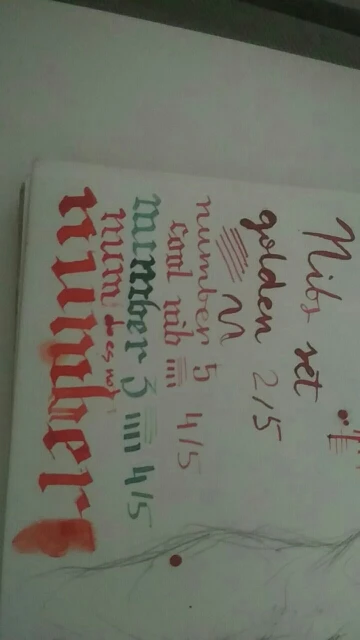 Nibs set
golden 2/5
number 5 4/5
cool nib
number 3 4/5
num does not
number